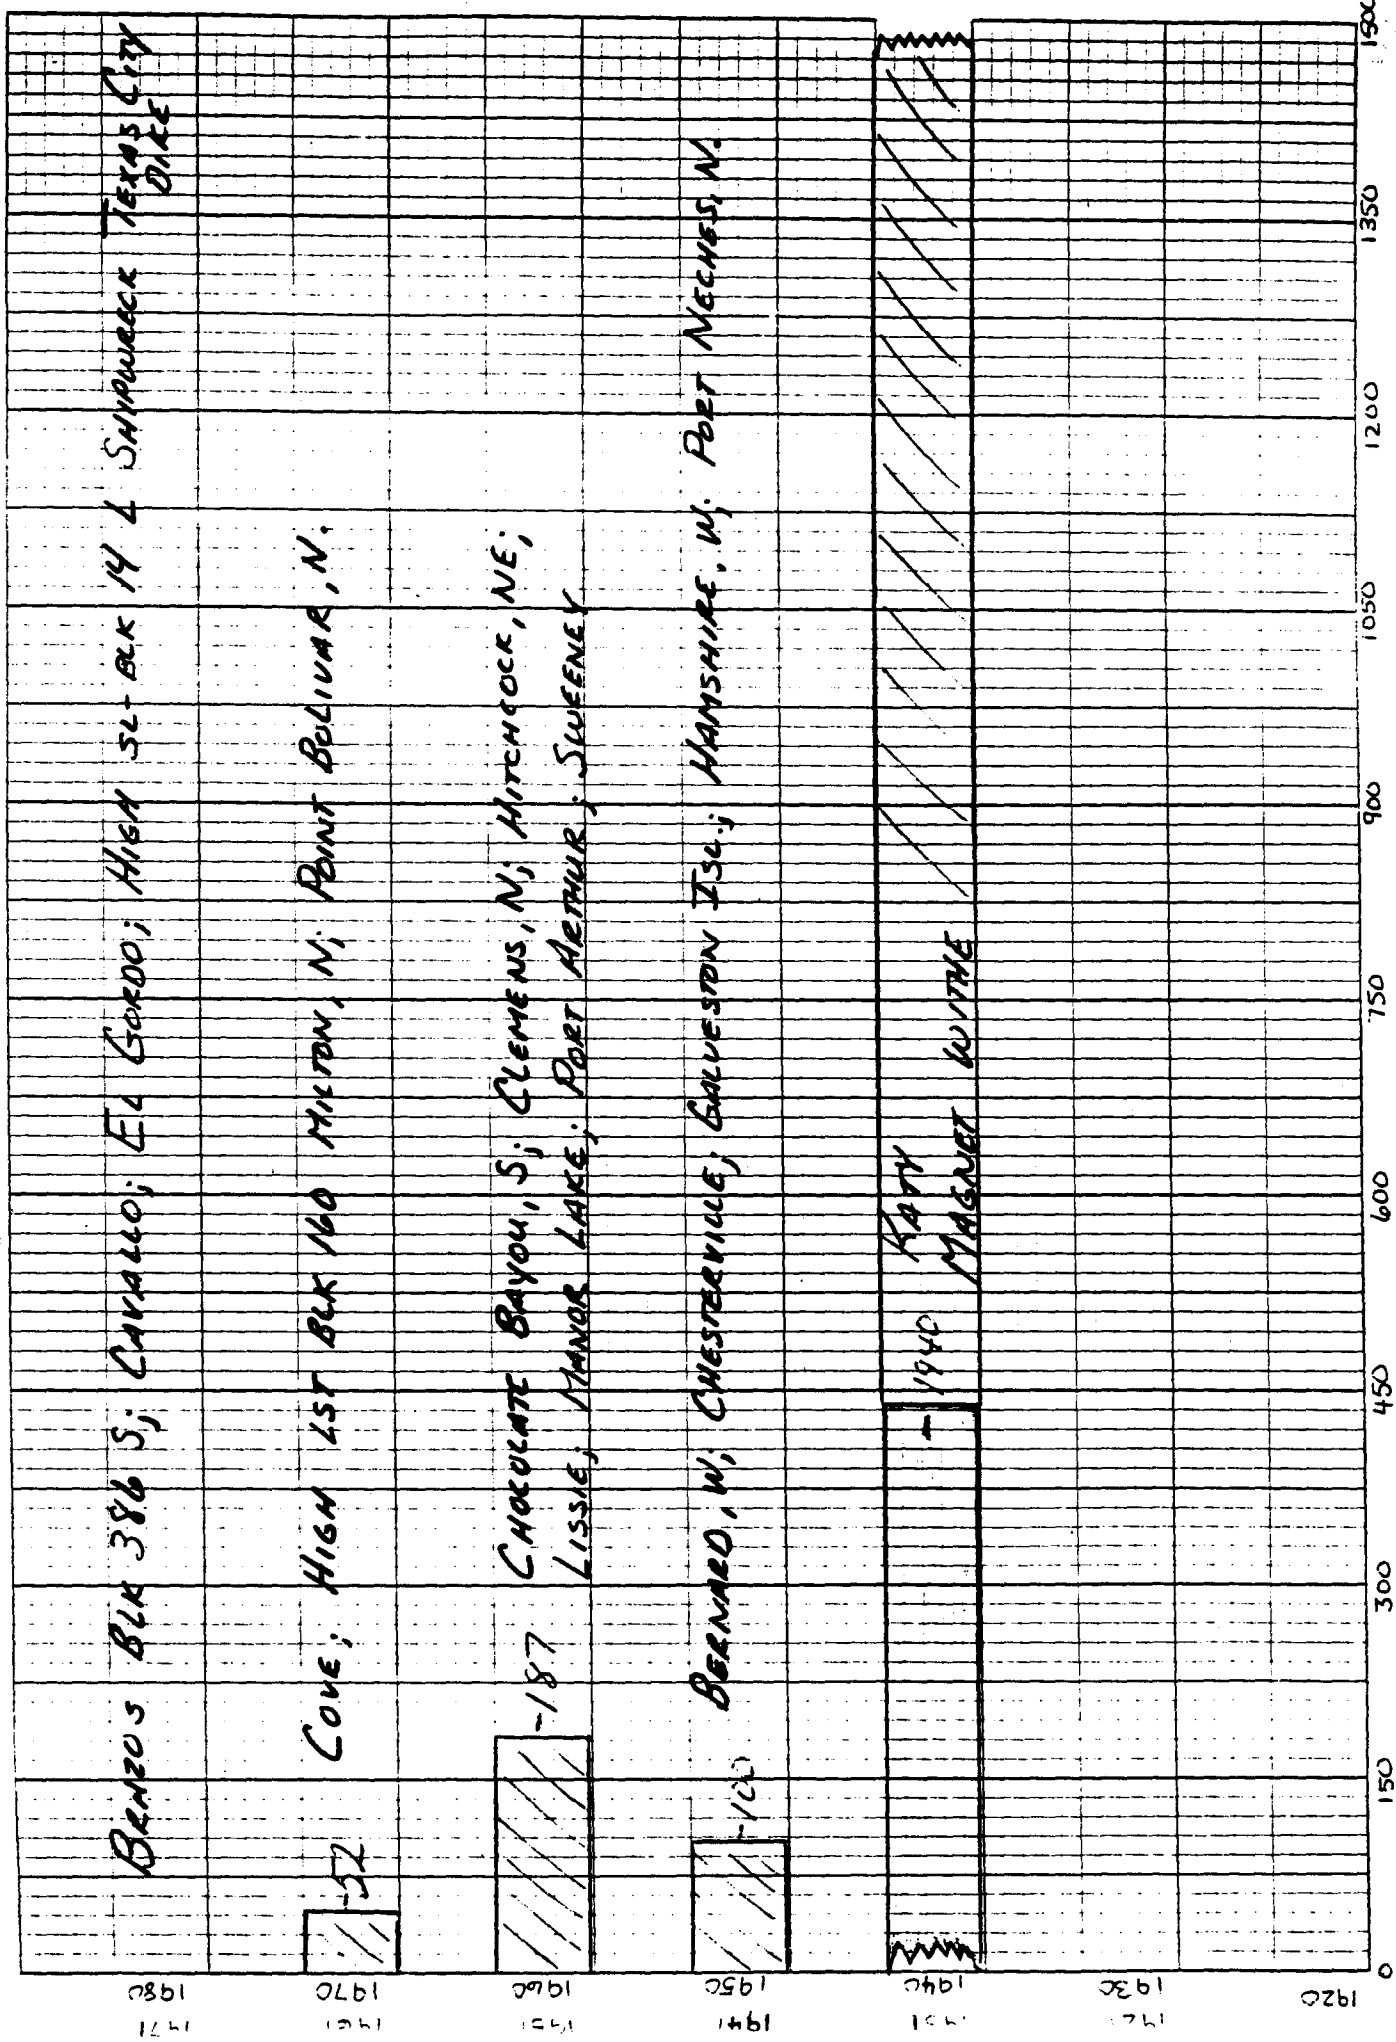 BRAZOS BLK 386 S; CAVALLO; EL GORDO; HIGH SL-BLK 14 L SHIPWRECK TEXAS CITY
DIKE
-52 COVE; HIGH LST BLK 160 MILTON, N; POINT BOLIVAR, N.
-187 CHOCOLATE BAYOU, S; CLEMENS, N; HITCHCOCK, NE;
LISSIE; MANOR LAKE; PORT ARTHUR; SWEENEY
-100 BERNARD, W; CHESTERVILLE; GALVESTON ISL.; HAMSHIRE, W; PORT NECHES, N.
-1940 KATY
MAGNET WITHE
1971 1980
1961 1970
1951 1960
1941 1950
1931 1940
1921 1930
1920
0 150 300 450 600 750 900 1050 1200 1350 1500